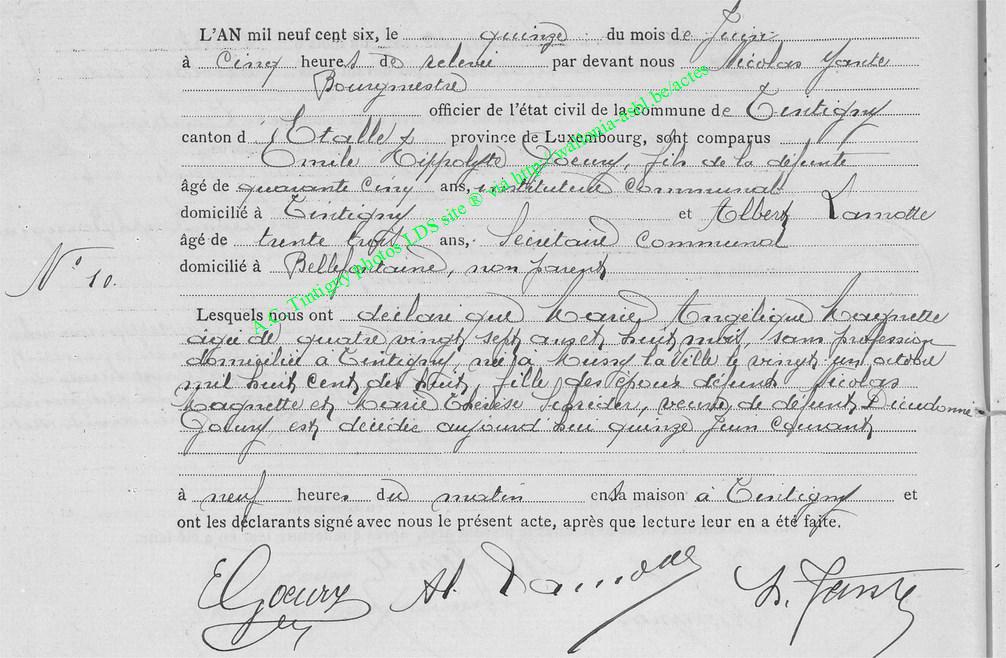 L'AN mil neuf cent six, le quinze du mois de Juin
à cinq heures de relevée par devant nous Nicolas Jante
Bourgmestre
officier de l'état civil de la commune de Tintigny
canton d'Etalle province de Luxembourg, sont comparus
Emile Hippolyte Goeury, fils de la défunte
âgé de quarante cinq ans, instituteur communal
domicilié à Tintigny et Albert Lamotte
âgé de trente huit ans, Secrétaire communal
N° 10.
domicilié à Bellefontaine, non parent
Lesquels nous ont déclaré que Marie Angélique Magnette
âgée de quatre vingt sept ans et huit mois, sans profession
domiciliée à Tintigny, née à Mussy la Ville le vingt un octobre
mil huit cent dix huit, fille des époux défunts Nicolas
Magnette et Marie Thérèse Scréder, veuve de défunt Dieudonné
Goeury, est décédée aujourd'hui quinze Juin courant
à neuf heures du matin en sa maison à Tintigny et
ont les déclarants signé avec nous le présent acte, après que lecture leur en a été faite.
EGoeury Al. Lamotte N. Jante
A.C. Tintigny photos LDS site ® via http://wallonia-asbl.be/actes